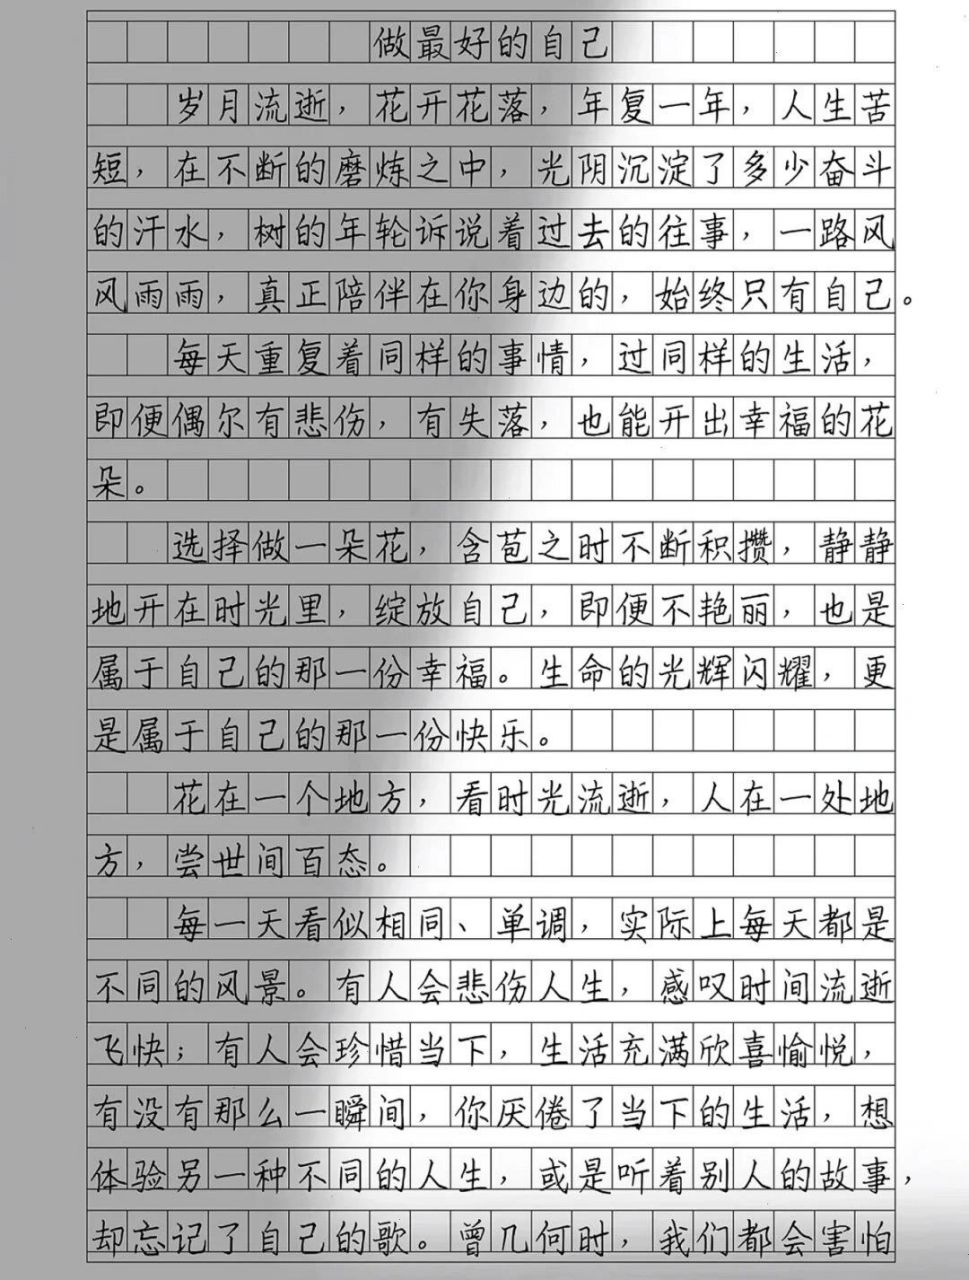 做最好的自己
岁月流逝，花开花落，年复一年，人生苦
短，在不断的磨炼之中，光阴沉淀了多少奋斗
的汗水，树的年轮诉说着过去的往事，一路风
风雨雨，真正陪伴在你身边的，始终只有自己。
每天重复着同样的事情，过同样的生活，
即便偶尔有悲伤，有失落，也能开出幸福的花
朵。
选择做一朵花，含苞之时不断积攒，静静
地开在时光里，绽放自己，即便不艳丽，也是
属于自己的那一份幸福。生命的光辉闪耀，更
是属于自己的那一份快乐。
花在一个地方，看时光流逝，人在一处地
方，尝世间百态。
每一天看似相同、单调，实际上每天都是
不同的风景。有人会悲伤人生，感叹时间流逝
飞快；有人会珍惜当下，生活充满欣喜愉悦，
有没有那么一瞬间，你厌倦了当下的生活，想
体验另一种不同的人生，或是听着别人的故事，
却忘记了自己的歌。曾几何时，我们都会害怕